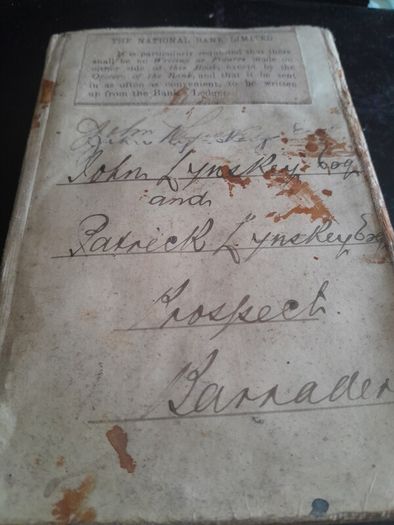 THE NATIONAL BANK LIMITED.
It is particularly requested that there
shall be no Writing or Figures made on
either side of this Book, except by the
Officers of the Bank, and that it be sent
in as often as convenient, to be written
up from the Bank's Ledger.
John Lynskey
John Lynskey Esq
and
Patrick Lynskey Esq
Prospect
Barrader